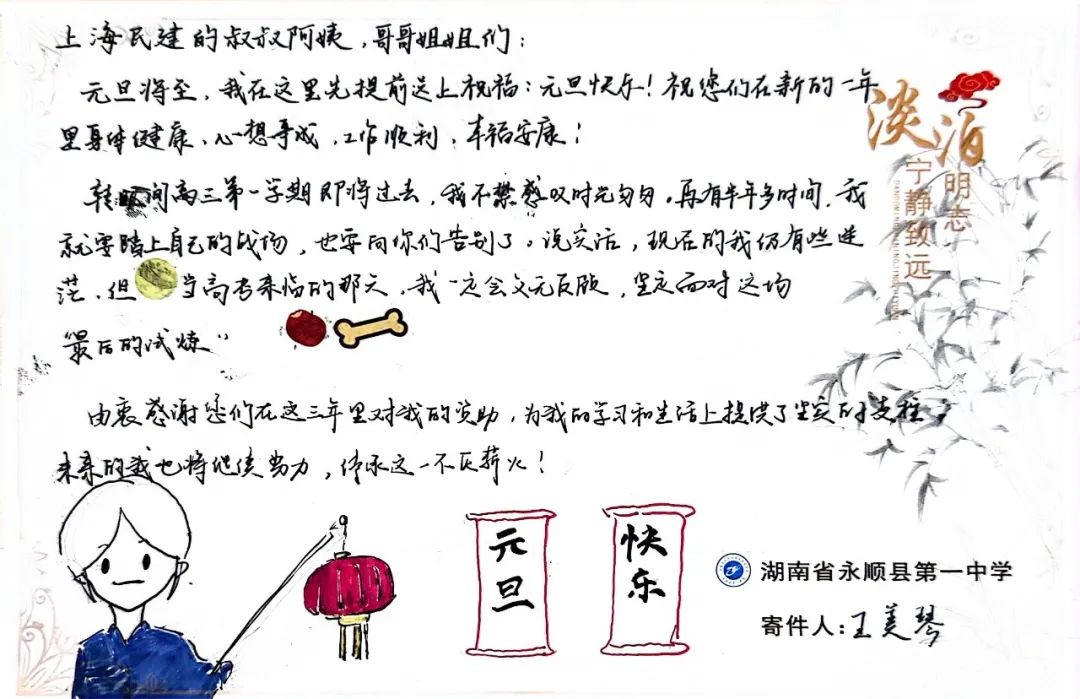 上海民建的叔叔阿姨，哥哥姐姐们：
元旦将至，我在这里先提前送上祝福：元旦快乐！祝您们在新的一年
里身体健康，心想事成，工作顺利，幸福安康！
转眼间高三第一学期即将过去，我不禁感叹时光匆匆。再有半年多时间，我
就要踏上自己的战场，也要向你们告别了。说实话，现在的我仍有些迷
茫，但 当高考来临的那天，我一定会义无反顾，坚定面对这场
"最后的试炼"
由衷感谢您们在这三年里对我的资助，为我的学习和生活上提供了坚实的支柱，
未来的我也将继续努力，传承这一不灭薪火！
淡泊
明志
宁静致远
元旦
快乐
湖南省永顺县第一中学
寄件人：王美琴